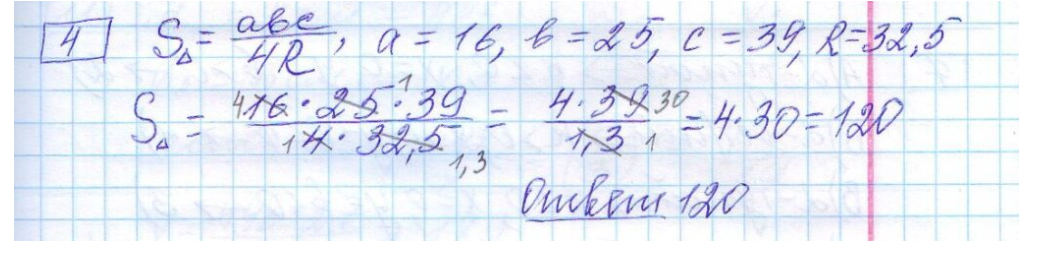 4 S△ = abc/4R, a = 16, b = 25, c = 39, R = 32,5
S△ = 4 16 · 25 1 · 39 / 1 4 · 32,5 1,3 = 4 · 39 30 / 1,3 1 = 4 · 30 = 120
Ответ 120